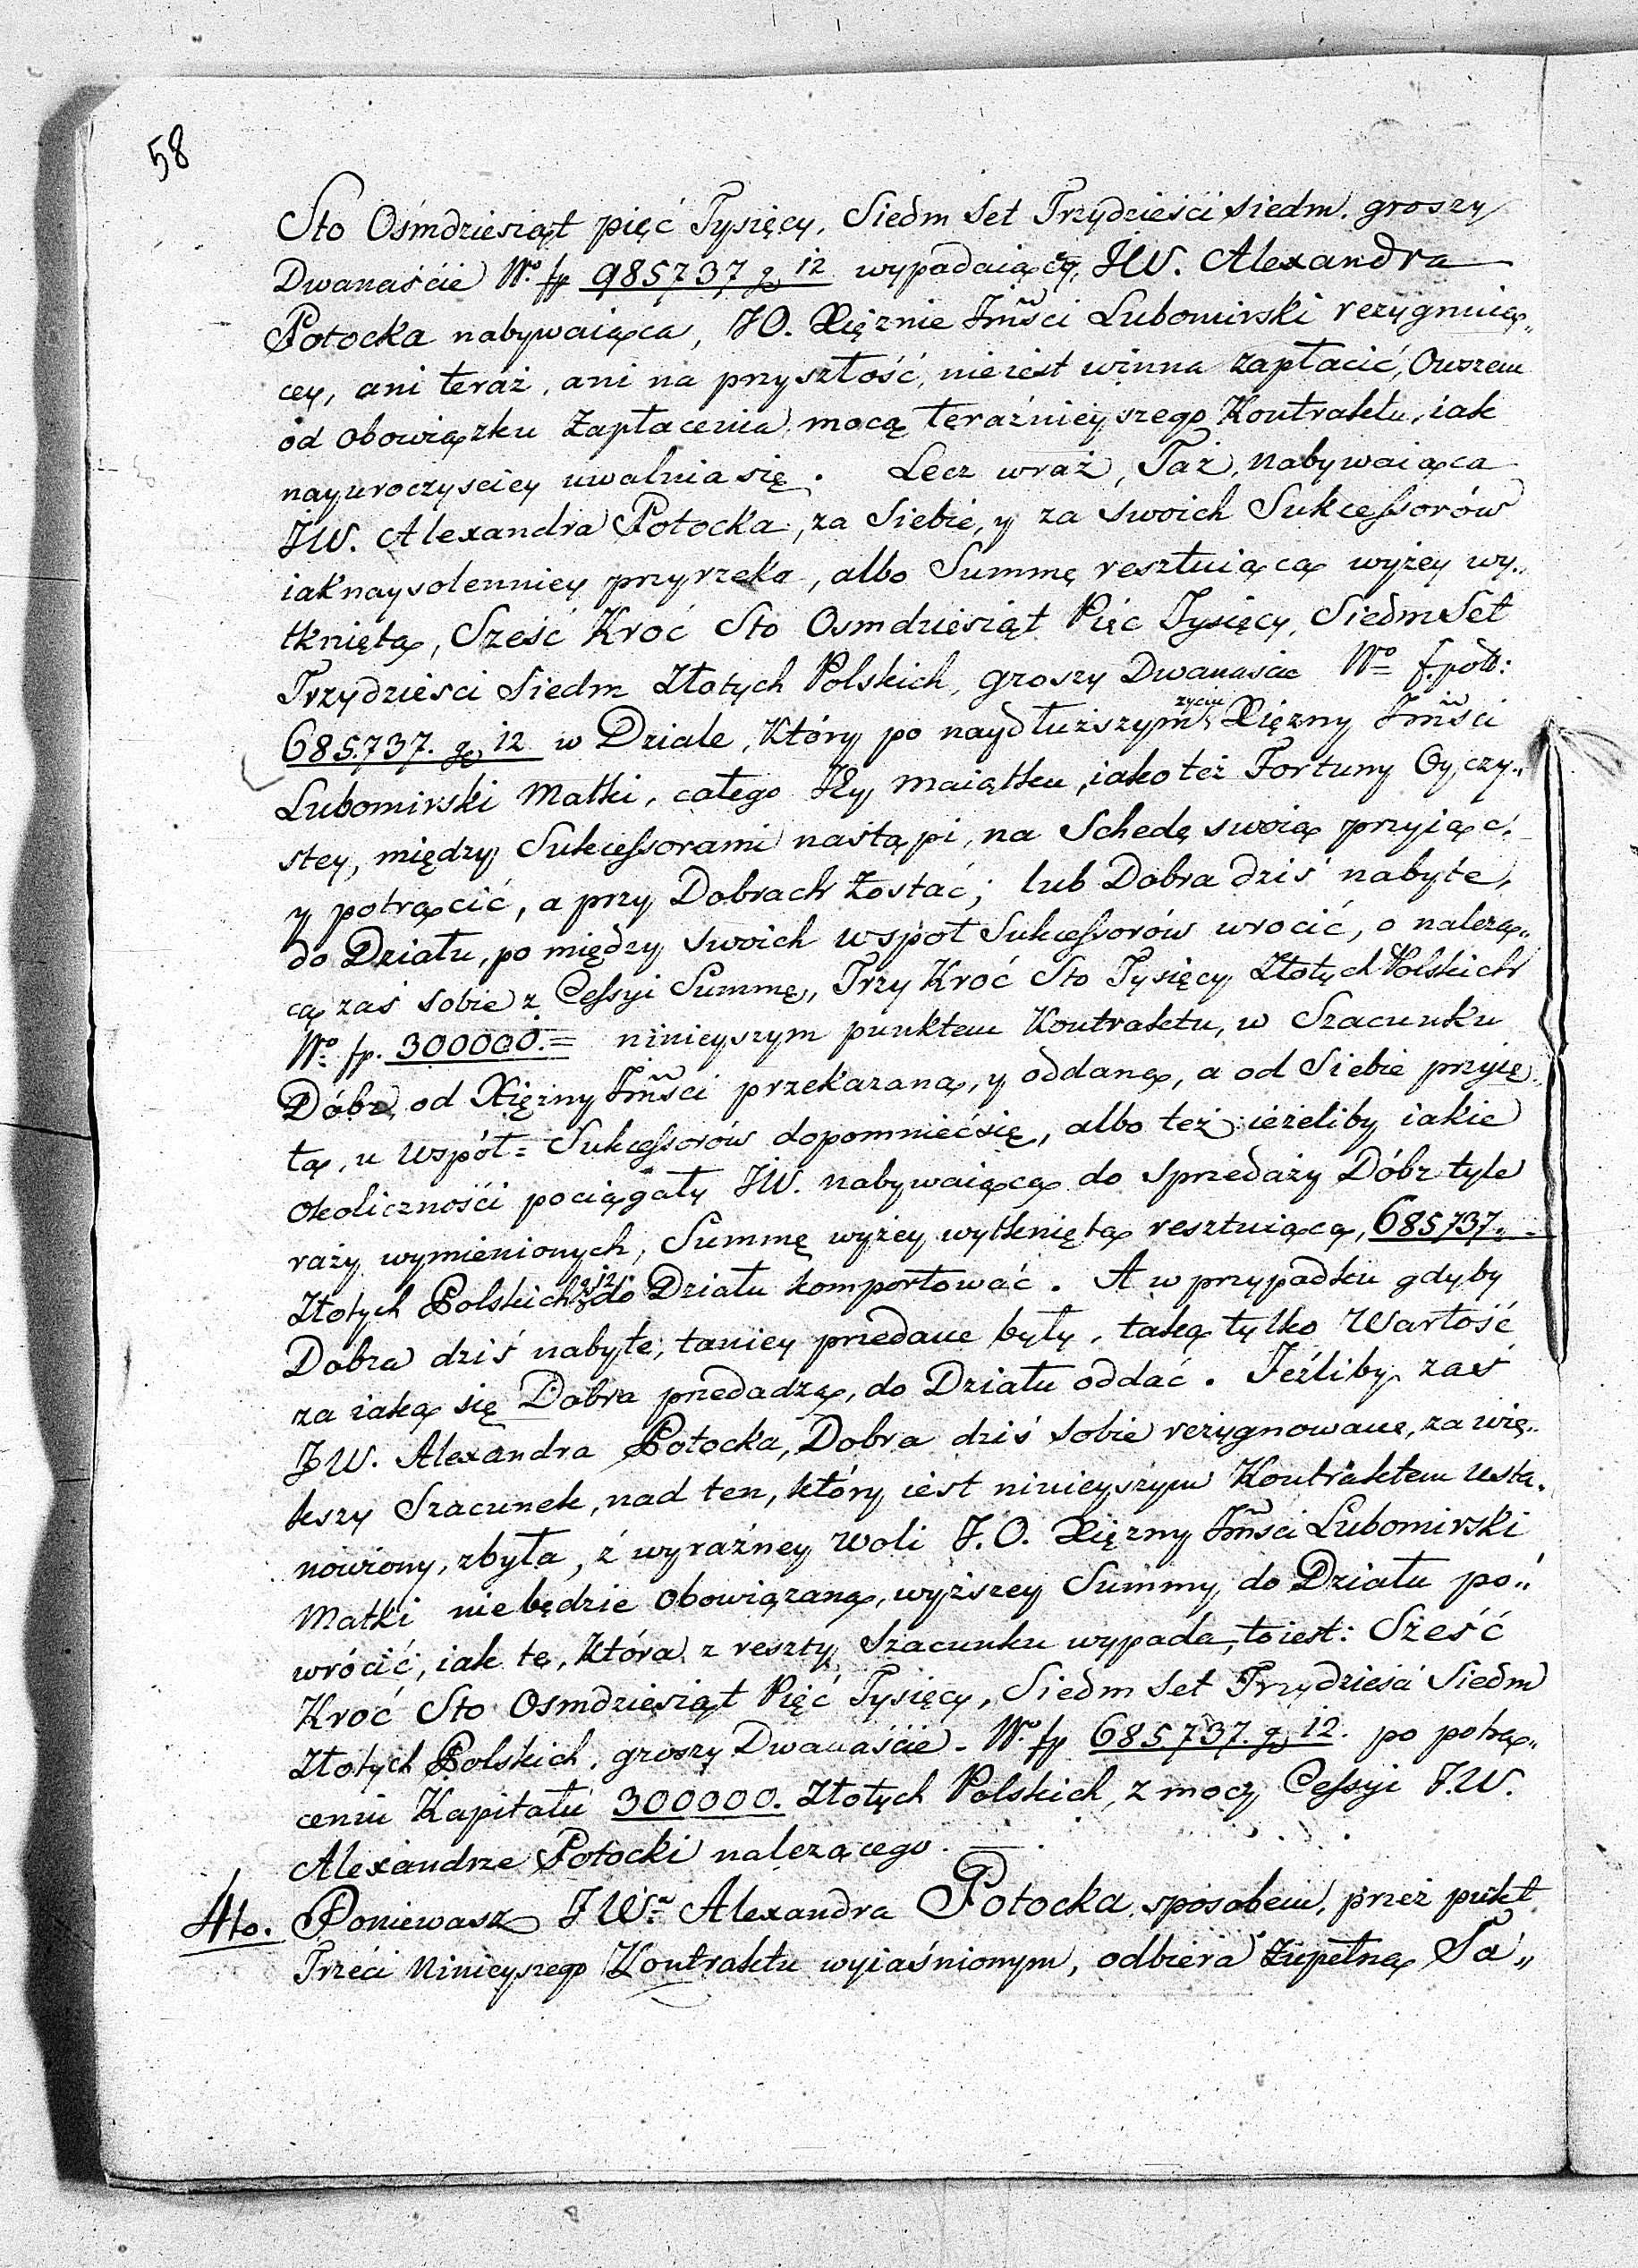 58
Sto Ośmdziesiąt pięć Tysięcy, Siedm Set Trzydzieści siedm. groszy
Dwanaście No. fp 985737 g 12 wypadaiącey, JW. Alexandra
Potocka nabywaiąca, JO. Xiężnie Jmści Lubomirski rezygnuią„
cey, ani teraz, ani na przyszłość, nie iest winna zapłacić, Owszem
od obowiązku Zapłacenia mocą teraźnieyszego Kontraktu, iak
nayuroczyściey uwalnia się. Lecz wraz, Taż, nabywaiąca
JW. Alexandra Potocka, za Siebie, y za swoich Sukcessorów
iak naysolenniey przyrzeka, albo Summę resztuiącą wyżey wy„
tkniętą, Sześć Kroć Sto Osmdziesiąt Pięc Tysięcy, Siedm Set
Trzydzieści Siedm Złotych Polskich, groszy Dwanaście No f.pol:
685.737. g 12 w Dziale, Który po naydłuższym życiu Xiężny Jmści
Lubomirski Matki, całego Jey maiątku, iako też Fortuny Oyczy„
stey, między Sukcessorami nastąpi, na Schedę swoią przyiąć,
y potrącić, a przy Dobrach Zostać; lub Dobra dziś nabyte,
do Działu, po między swoich wspoł Sukcessorów wrocić, o należą„
cą zaś sobie z Cessyi Summę, Trzy Kroć Sto Tysięcy Złotych Polskich
No. fp. 300000.= ninieyszym punktem Kontraktu, w Szacunku
Dóbr, od Xiężny Jmści przekazaną, y oddaną, a od Siebie przyię„
tą, u Współ=Sukcessorów dopomnieć się, albo też ieżeliby iakie
okoliczności pociągały JW. nabywaiącą do sprzedaży Dóbr tyle
razy wymienionych, Summę wyżey wytkniętą resztuiącą, 685737„
Złotych Polskich g 12 do Działu komportować. A w przypadku gdyby
Dobra dziś nabyte, taniey przedane były, taką tylko Wartość
za iaką się Dobra przedadzą, do Działu oddać. Jeźliby zaś
JW. Alexandra Potocka, Dobra dziś sobie rezygnowane, za wię„
kszy Szacunek, nad ten, który iest ninieyszym Kontraktem Usta„
nowiony, zbyła, z wyraźney woli J.O. Xiężny Jmści Lubomirski
Matki nie będzie obowiązaną, wyższey Summy do Działu po„
wrócić, iak tę, Która z reszty Szacunku wypada, to iest: Sześć
Kroć Sto Osmdziesiąt Pięć Tysięcy, Siedm Set Trzydzieści Siedm
Złotych Polskich, groszy Dwanaście. No. fp 685.737. g 12. po potrą„
ceniu Kapitału 300000. Złotych Polskich, z mocy Cessyi J.W.
Alexandrze Potocki należącego.
4to. Ponieważ JWa Alexandra Potocka, sposobem, przez pukt
Trzeci Ninieyszego Kontraktu wyiaśnionym, odbiera Zupełną Sa„